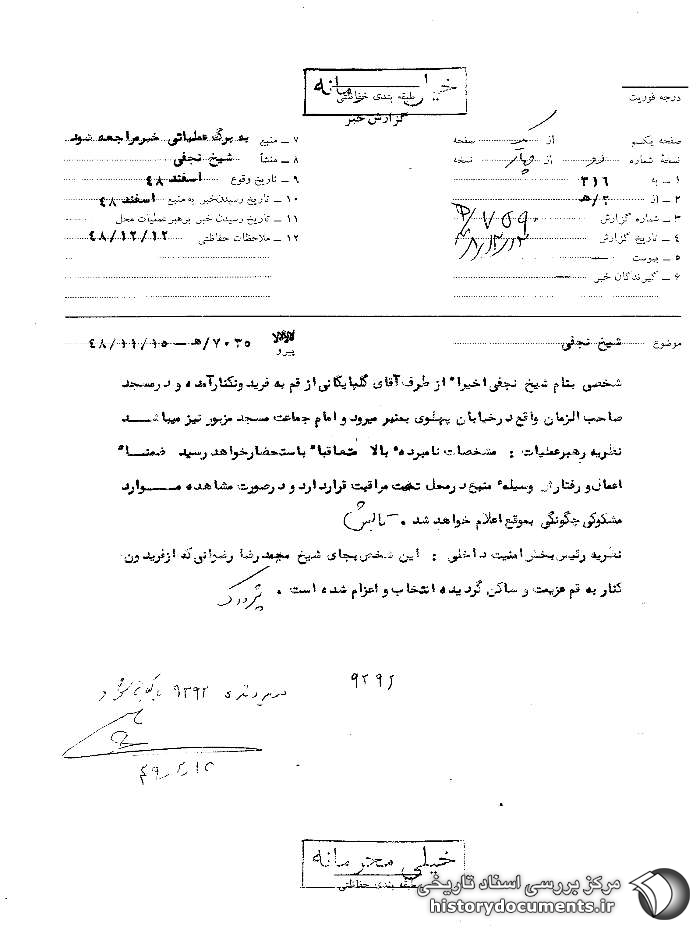 خیلی محرمانه
طبقه بندی حفاظتی
گزارش خبر
درجه فوریت
صفحه یکم از یک صفحه
نسخهٔ شماره از چهار نسخه
۱ ـ به ۳۱۶
۲ ـ از ۲/ه‍
۳ ـ شماره گزارش ۷۵۹۰
۴ ـ تاریخ گزارش ۴۸/۱۲/۱۳
۵ ـ پیوست
۶ ـ گیرندگان خبر
۷ ـ منبع به برگ عملیاتی خبر مراجعه شود
۸ ـ منشأ شیخ نجفی
۹ ـ تاریخ وقوع اسفند ۴۸
۱۰ ـ تاریخ رسیدن خبر به منبع اسفند ۴۸
۱۱ ـ تاریخ رسیدن خبر برهبر عملیات محل
۱۲ ـ ملاحظات حفاظتی ۴۸/۱۲/۱۲
موضوع شیخ نجفی
پیرو ۷۰۳۵/ه‍ ـ ۴۸/۱۱/۱۵
شخصی بنام شیخ نجفی اخیراً از طرف آقای گلپایگانی از قم به فریدونکنار آمده و در مسجد
صاحب الزمان واقع در خیابان پهلوی بمنبر میرود و امام جماعت مسجد مزبور نیز میباشد
نظریه رهبر عملیات : مشخصات نامبرده بالا متعاقباً باستحضار خواهد رسید ضمناً
اعمال و رفتارش وسیلهٔ منبع در محل تحت مراقبت قرار دارد و در صورت مشاهده موارد
مشکوکی چگونگی بموقع اعلام خواهد شد .
نظریه رئیس بخش امنیت داخلی : این شخص بجای شیخ محمد رضا رضوانی که از فریدون
کنار به قم عزیمت و ساکن گردیده انتخاب و اعزام شده است .
۹۲۹۲
۹۲۹۲
خیلی محرمانه
طبقه بندی حفاظتی
مرکز بررسی اسناد تاریخی
historydocuments.ir